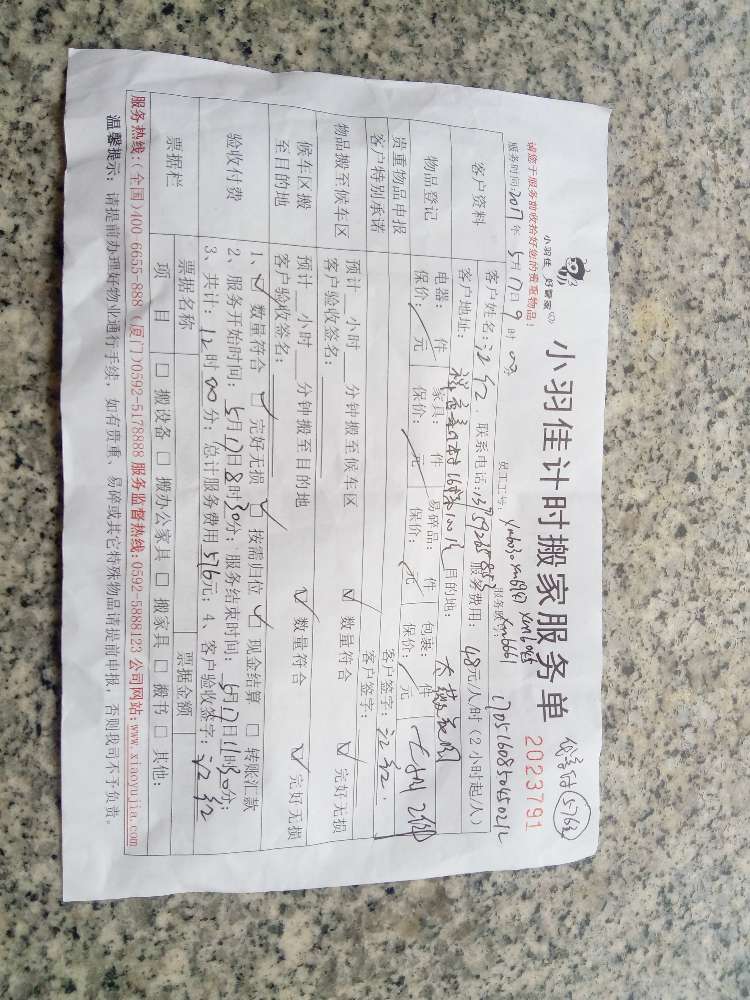 小羽佳 好管家
小羽佳计时搬家服务单
2023791
(576元)
请您于服务前收拾好您的贵重物品!
服务时间:2017年5月17日9时00分
员工工号:
服务账号:
1705160850450212
客户资料
客户姓名:江红 联系电话: 服务费用:48元/人/时(2小时起/人)
客户地址: 目的地:
物品登记
电器: 件 家具: 件 易碎品: 件 包装: 件
保价: 元 保价: 元 保价: 元 保价: 元
贵重物品申报
客户签字:江红
客户特别承诺
客户签字:
物品搬至候车区
预计 小时 分钟搬至候车区 数量符合 完好无损
客户验收签名:
候车区搬至目的地
预计 小时 分钟搬至目的地 数量符合 完好无损
客户验收签名:
验收付费
1、数量符合 完好无损 按需归位 现金结算 转账汇款
2、服务开始时间:5月17日8时30分;服务结束时间:5月17日11时30分;
3、共计:12时00分;总计服务费用576元;4、客户验收签字:江红
票据栏
票据名称 票据金额
项目 搬设备 搬办公家具 搬家具 搬书 其他:
服务热线:(全国)400-6655-888 (厦门)0592-5178888 服务监督热线:0592-5888123 公司网站:www.xiaoyujia.com
温馨提示:请提前办理好物业通行手续,如有贵重、易碎或其它特殊物品请提前申报,否则我司不予负责。